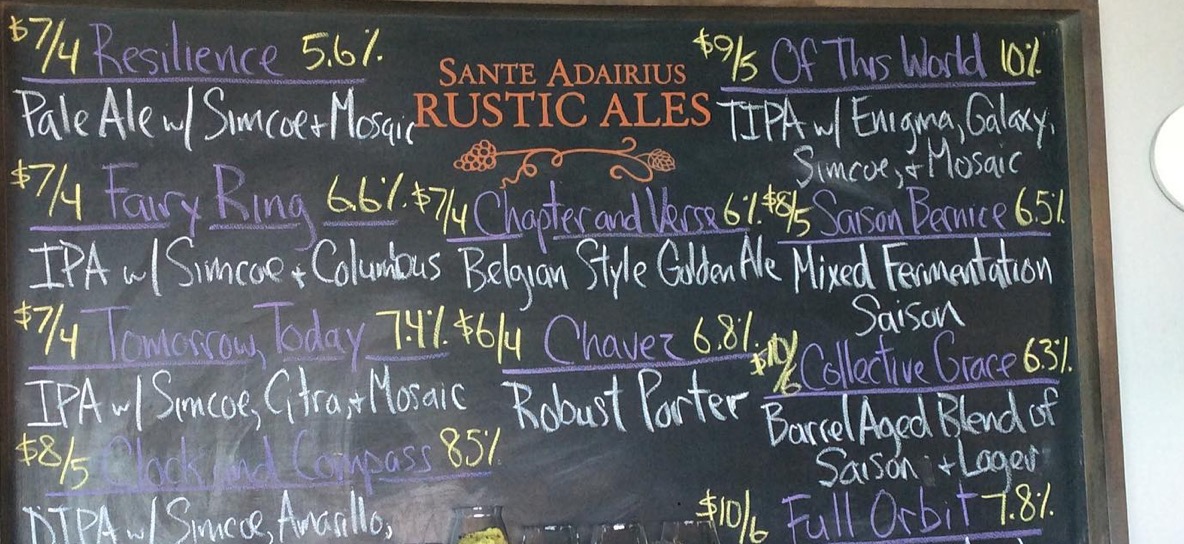 $7/4 Resilience 5.6%
Pale Ale w/ Simcoe + Mosaic
$7/4 Fairy Ring 6.6%
IPA w/ Simcoe + Columbus
$7/4 Tomorrow, Today 7.4%
IPA w/ Simcoe, Citra, + Mosaic
$8/5 Clock and Compass 8.5%
DIPA w/ Simcoe, Amarillo,
SANTE ADAIRIUS
RUSTIC ALES
$7/4 Chapter and Verse 6%
Belgian Style Golden Ale
$6/4 Chavez 6.8%
Robust Porter
$9/5 Of This World 10%
TIPA w/ Enigma, Galaxy,
Simcoe, + Mosaic
$8/5 Saison Bernice 6.5%
Mixed Fermentation
Saison
$10/6 Collective Grace 6.3%
Barrel Aged Blend of
Saison + Lager
$10/6 Full Orbit 7.8%